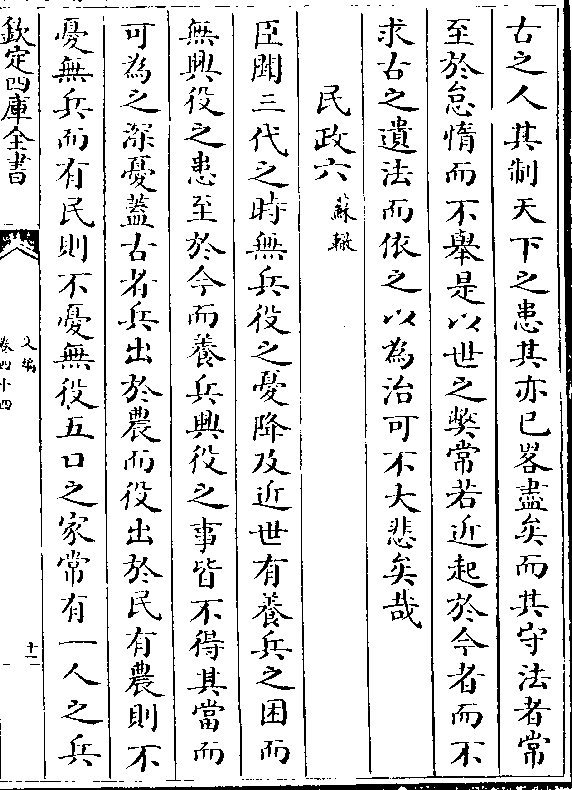 古之人其制天下之患其亦已畧盡矣而其守法者常
至於怠惰而不舉是以世之弊常若近起於今者而不
求古之遺法而依之以為治可不大悲矣哉
民政六 蘇轍
臣聞三代之時無兵役之憂降及近世有養兵之困而
無興役之患至於今而養兵興役之事皆不得其當而
可為之深憂蓋古者兵出於農而役出於民有農則不
憂無兵而有民則不憂無役五口之家常有一人之兵
欽定四庫全書
文編
卷四十四
十一